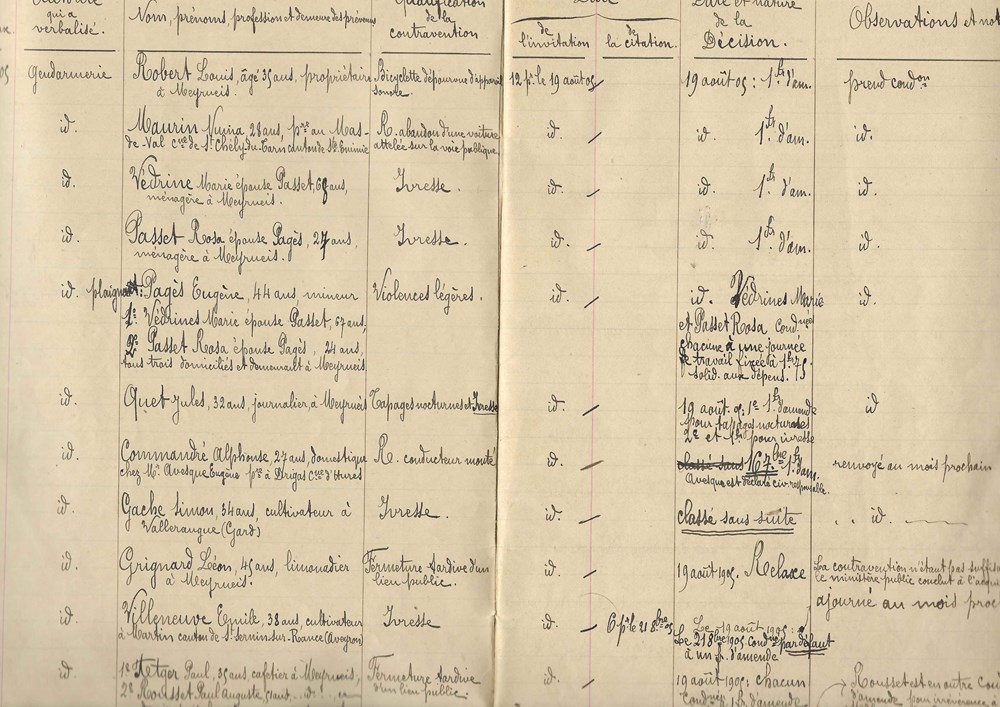 qui a
verbalisé.
Nom, prénoms profession et demeure des prévenus
Qualification
de la
contravention
Date
de l'invitation
de la citation.
Date et nature
de la
Décision.
Observations et not
Gendarmerie
Robert Louis, âgé 35 ans, propriétaire
à Meyrueis.
Bicyclette dépourvue d'appareil
sonore.
12 pr le 19 août 05
19 août 05 : 1 fr d'am.
prend cond on
id.
Maurin Numa, 28 ans, pre au Mas-
de-Val cne de St Chély-du-Tarn canton de Ste Enimie
R. abandon d'une voiture
attelée sur la voie publique.
id.
id. 1 fr d'am.
id.
id.
Védrine Marie épouse Passet, 68 ans,
ménagère à Meyrueis.
Ivresse.
id.
id. 1 fr d'am.
id.
id.
Passet Rosa épouse Pagès, 27 ans,
ménagère à Meyrueis.
Ivresse.
id.
id. 1 fr d'am.
id.
id. plaignant: Pagès Eugène, 44 ans, mineur
1° Védrines Marie épouse Passet, 67 ans,
2° Passet Rosa épouse Pagès, 24 ans,
tous trois domiciliés et demeurant à Meyrueis
Violences légères.
id.
id. Védrines Marie
et Passet Rosa cond nées
chacune à une journée
de travail fixée à 1 fr 75
solid. aux dépens.
id.
id.
Quet Jules, 32 ans, journalier, à Meyrueis
Tapages nocturnes et Ivresse
id.
19 août 05 : 1° 1 fr d'amende
pour tapages nocturnes
2° et 1 fr pour ivresse
id
id.
Commandré Alphonse, 27 ans, domestique
chez Mr Avesque Eugène pre à Drigas cne d'Hures
R. conducteur monté
id.
classé sans 16 7bre 1 fr d'am.
Avesque est déclaré civ. responsable.
renvoyé au mois prochain
id.
Gache Simon, 34 ans, cultivateur à
Valleraugue (Gard)
Ivresse.
id.
classé sans suite
.. id.
id.
Grignard Léon, 45 ans, limonadier
à Meyrueis.
Fermeture tardive d'un
lieu public.
id.
19 août 1905. Relaxe
La contravention n'étant pas suffis
le ministère public conclut à l'acqu
ajourné au mois proc
id.
Villeneuve Emile, 38 ans, cultivateur
à Martin canton de St Sernin-sur-Rance (Aveyron)
Ivresse
id.
6 pr le 21 8bre 05
Le 19 août 1905 :
Le 21 8bre 1905 cond né par défaut
à un fr. d'amende
id.
1° Retger Paul, 35 ans, cafetier à Meyrueis,
2° Rousset Paul Auguste
Fermeture tardive
d'un lieu public.
id.
19 août 1905 : chacun
1 fr. d'amende
Rousset est en outre Con
d'amende pour irrévérence à